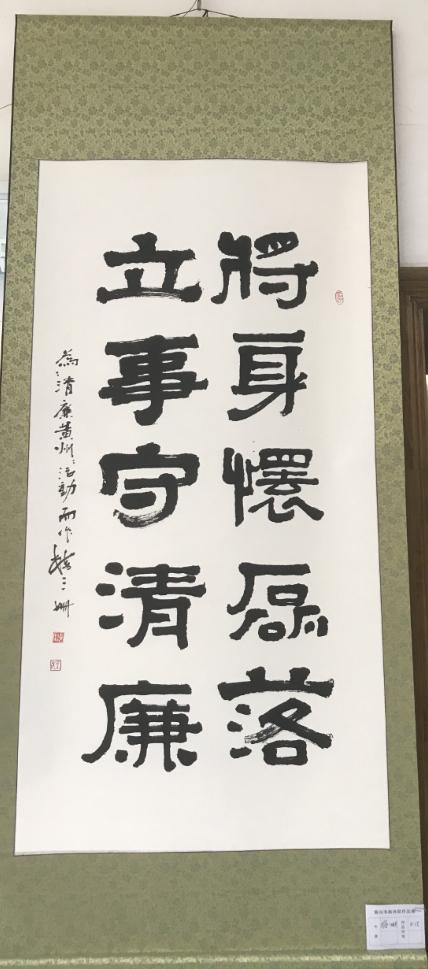 将身懷磊落
立事守清廉
為清廉黄州活動而作